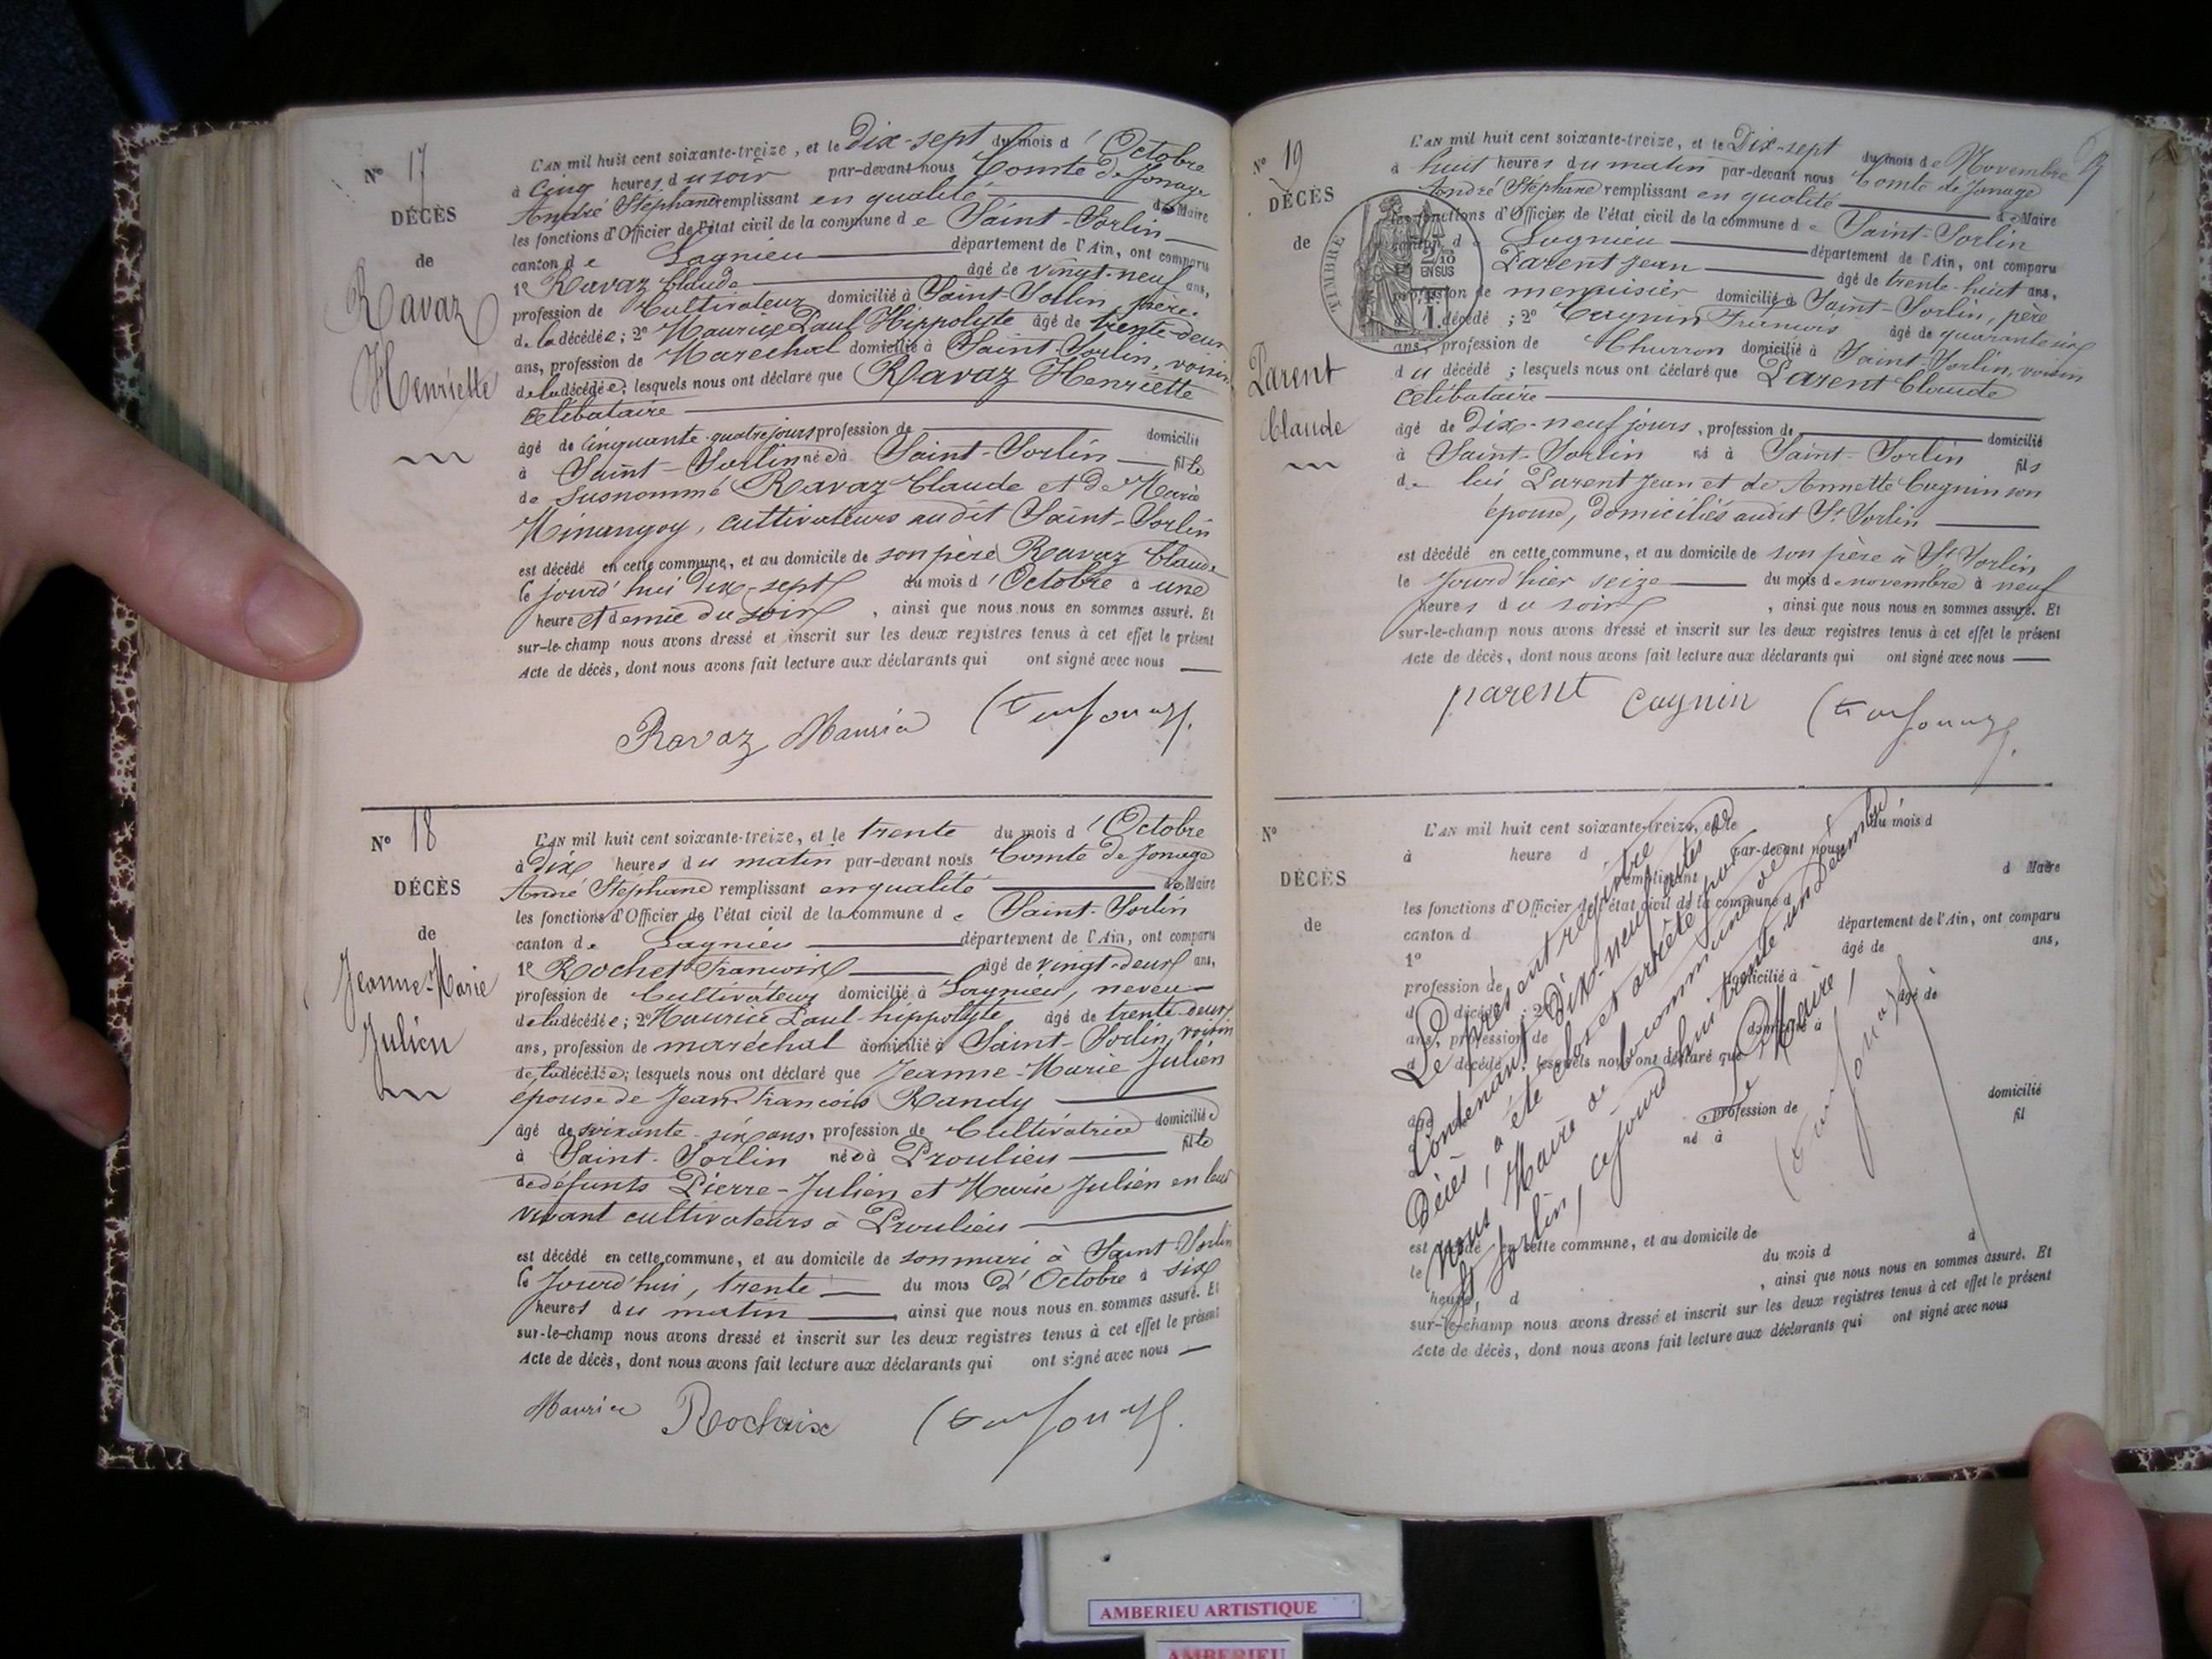 N° 17
DÉCÈS
de
Ravaz
Henriette
L'AN mil huit cent soixante-treize, et le Dix-sept du mois d'Octobre
à cinq heures du soir par-devant nous Comte de Jonage
André Stéphane remplissant en qualité de Maire
les fonctions d'Officier de l'état civil de la commune de Saint-Sorlin
canton de Lagnieu département de l'Ain, ont comparu
1° Ravaz Claude âgé de vingt-neuf ans,
profession de Cultivateur domicilié à Saint-Sorlin, père
de la décédée; 2° Maurice Paul Hippolyte âgé de trente-deux
ans, profession de Marechal domicilié à Saint-Sorlin, voisin
de la décédée; lesquels nous ont déclaré que Ravaz Henriette
célibataire
âgé de cinquante-quatre jours profession de domicilié
à Saint-Sorlin née à Saint-Sorlin fille
de susnommé Ravaz Claude et de Marie
Minangoy, cultivateurs audit Saint-Sorlin
est décédé en cette commune, et au domicile de son père Ravaz Claude
le jourd'hui dix-sept du mois d'Octobre à une
heure et demie du soir, ainsi que nous nous en sommes assuré. Et
sur-le-champ nous avons dressé et inscrit sur les deux registres tenus à cet effet le présent
Acte de décès, dont nous avons fait lecture aux déclarants qui ont signé avec nous
Ravaz Maurice
N° 18
DÉCÈS
de
Jeanne-Marie
Julien
L'AN mil huit cent soixante-treize, et le trente du mois d'Octobre
à Dix heures du matin par-devant nous Comte de Jonage
André Stéphane remplissant en qualité de Maire
les fonctions d'Officier de l'état civil de la commune de Saint-Sorlin
canton de Lagnieu département de l'Ain, ont comparu
1° Rochet François âgé de vingt-deux ans,
profession de Cultivateur domicilié à Lagnieu, neveu
de la décédée; 2° Maurice Paul-hippolyte âgé de trente-deux
ans, profession de marechal domicilié à Saint-Sorlin, voisin
de la décédée; lesquels nous ont déclaré que Jeanne-Marie Julien
épouse de Jean François Randy
âgé de soixante-six ans, profession de Cultivatrice domiciliée
à Saint-Sorlin née à Proulieu fille
de défunts Pierre-Julien et Marie Julien en leur
vivant cultivateurs à Proulieu
est décédé en cette commune, et au domicile de son mari à Saint Sorlin
le jourd'hui, trente du mois d'Octobre à six
heures du matin, ainsi que nous nous en sommes assuré. Et
sur-le-champ nous avons dressé et inscrit sur les deux registres tenus à cet effet le présent
Acte de décès, dont nous avons fait lecture aux déclarants qui ont signé avec nous
Maurice
N° 19
DÉCÈS
de
Parent
Claude
TIMBRE
2/10
EN SUS
L'AN mil huit cent soixante-treize, et le Dix-sept du mois de Novembre
à huit heures du matin par-devant nous Comte de Jonage
André Stéphane remplissant en qualité de Maire
les fonctions d'Officier de l'état civil de la commune de Saint-Sorlin
canton de Lagnieu département de l'Ain, ont comparu
Parent Jean âgé de trente-huit ans,
profession de menuisier domicilié à Saint-Sorlin, père
du décédé; 2° Cugnin âgé de quarante six
ans, profession de Charron domicilié à Saint-Sorlin, voisin
du décédé; lesquels nous ont déclaré que Parent Claude
célibataire
âgé de Dix-neuf jours, profession de domicilié
à Saint-Sorlin né à Saint-Sorlin fils
de lui Parent Jean et de Annette Cugnin son
épouse, domiciliés audit St Sorlin
est décédé en cette commune, et au domicile de son père à St Sorlin
le jourd'hier seize du mois de novembre à neuf
heures du soir, ainsi que nous nous en sommes assuré. Et
sur-le-champ nous avons dressé et inscrit sur les deux registres tenus à cet effet le présent
Acte de décès, dont nous avons fait lecture aux déclarants qui ont signé avec nous
parent Cugnin
N°
DÉCÈS
de
L'AN mil huit cent soixante-treize, et le du mois d
à heure d par-devant nous
remplissant d Maire
les fonctions d'Officier de l'état civil de la commune d
canton d département de l'Ain, ont comparu
1° âgé de ans,
profession de domicilié à
d décédé; 2° âgé de
ans, profession de domicilié à
d décédé; lesquels nous ont déclaré que
âgé profession de domicilié
né à fil
est décédé en cette commune, et au domicile de
le du mois d
heure d, ainsi que nous nous en sommes assuré. Et
sur-le-champ nous avons dressé et inscrit sur les deux registres tenus à cet effet le présent
Acte de décès, dont nous avons fait lecture aux déclarants qui ont signé avec nous
Le présent régistre
Contenant Dix-neuf actes de
Décès, a été clos et arrêté par
nous, Maire de la commune de
St Sorlin, cejourd'hui trente un Décembre
Le Maire,
AMBERIEU ARTISTIQUE
AMBERIEU